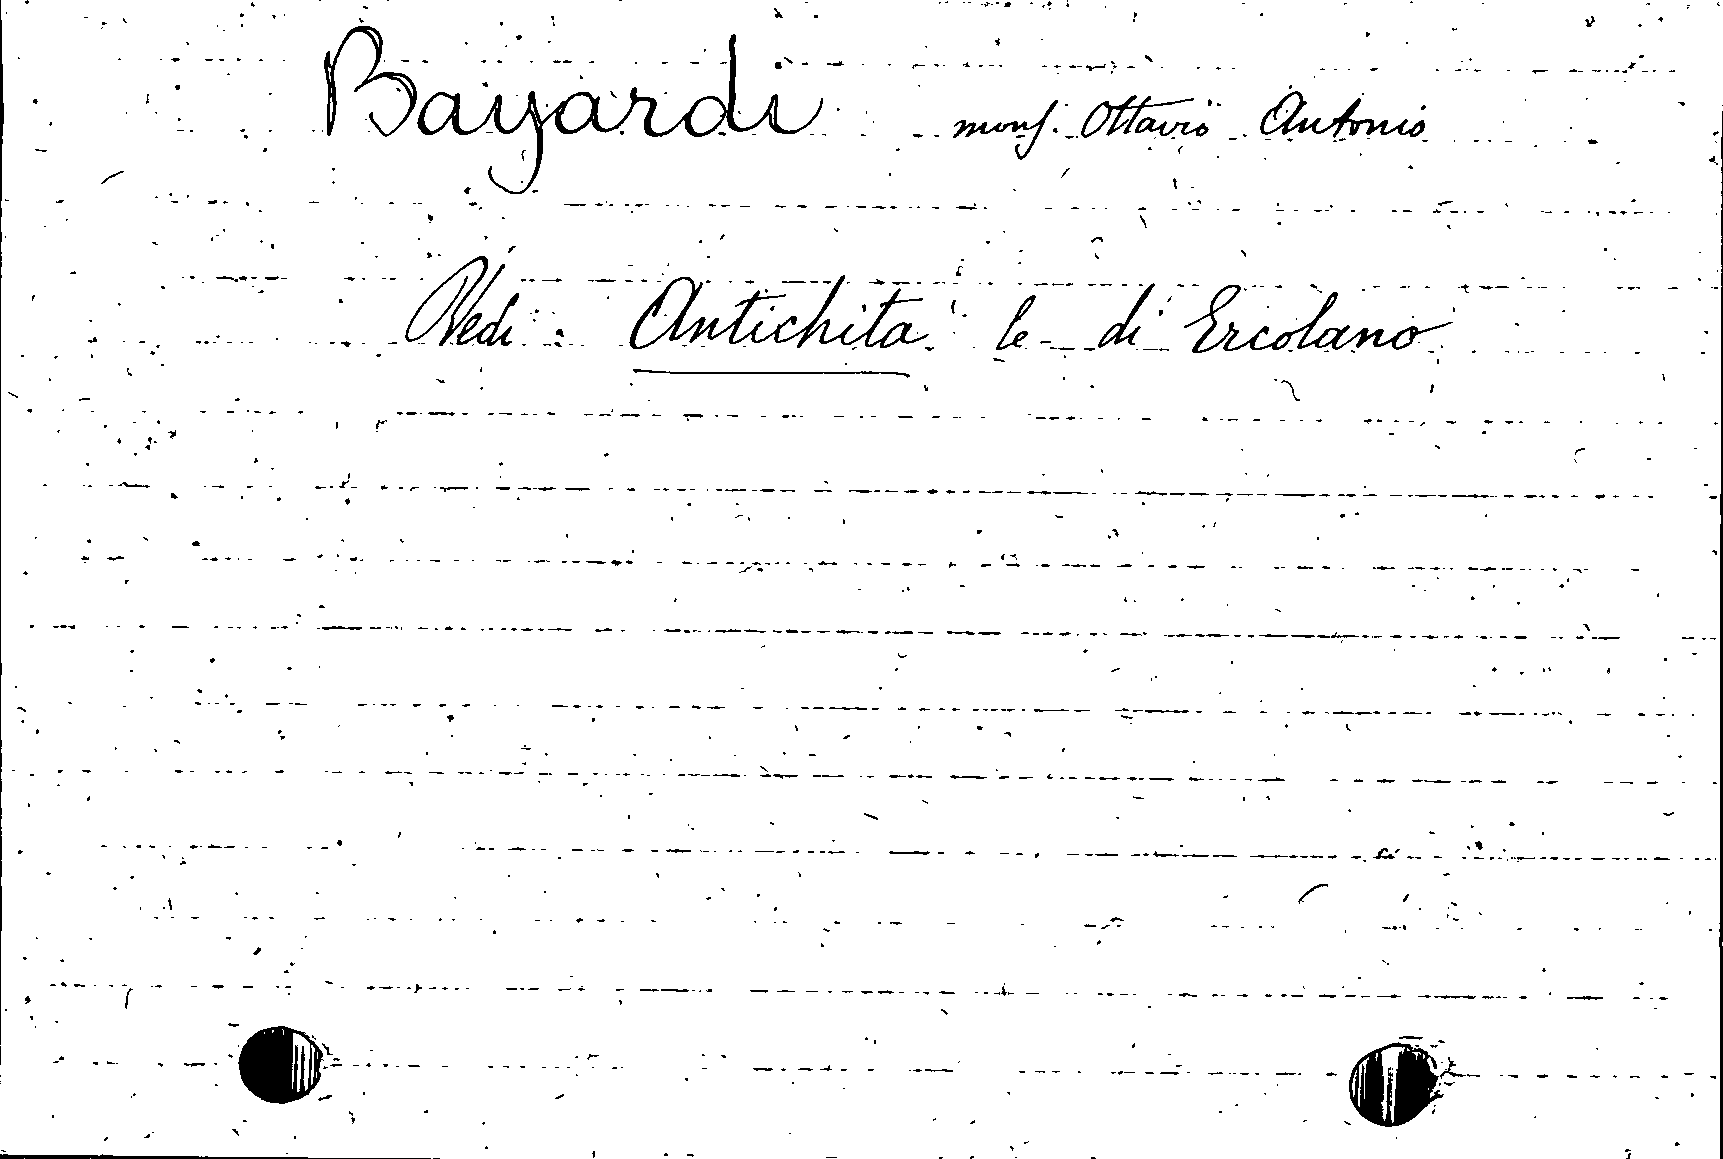 Bayardi mons. Ottavio Antonio
Vedi: Antichità le di Ercolano